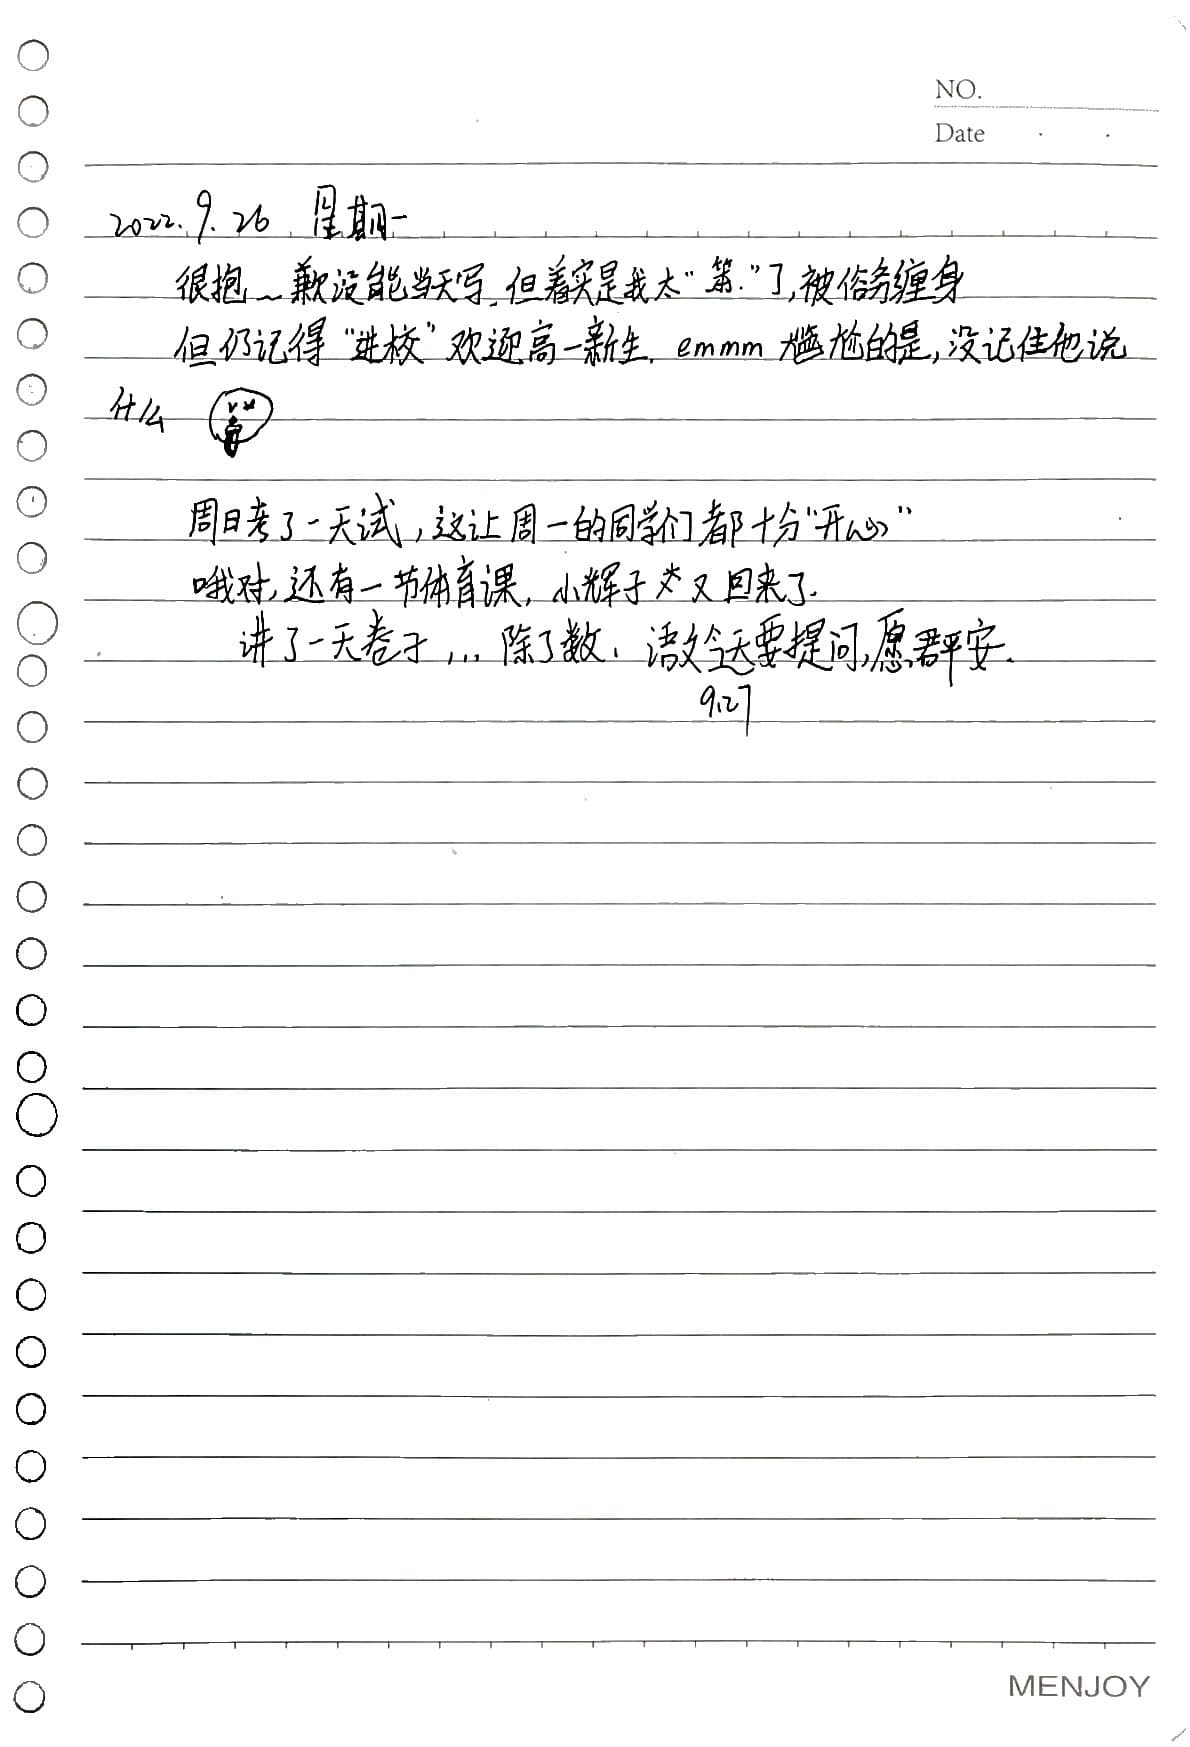 NO.
Date
2022.9.26 星期一
很抱~歉没能当天写.但着实是我太“第.”了,被俗务缠身
但仍记得“进校”欢迎高一新生. emmm 尴尬的是,没记住他说
什么
周日考了一天试,这让周一的同学们都十分“开心”
哦对,还有一节体育课,小辉子又回来了.
讲了一天卷子,...除了数、语文今天要提问,愿君平安.
9.27
MENJOY